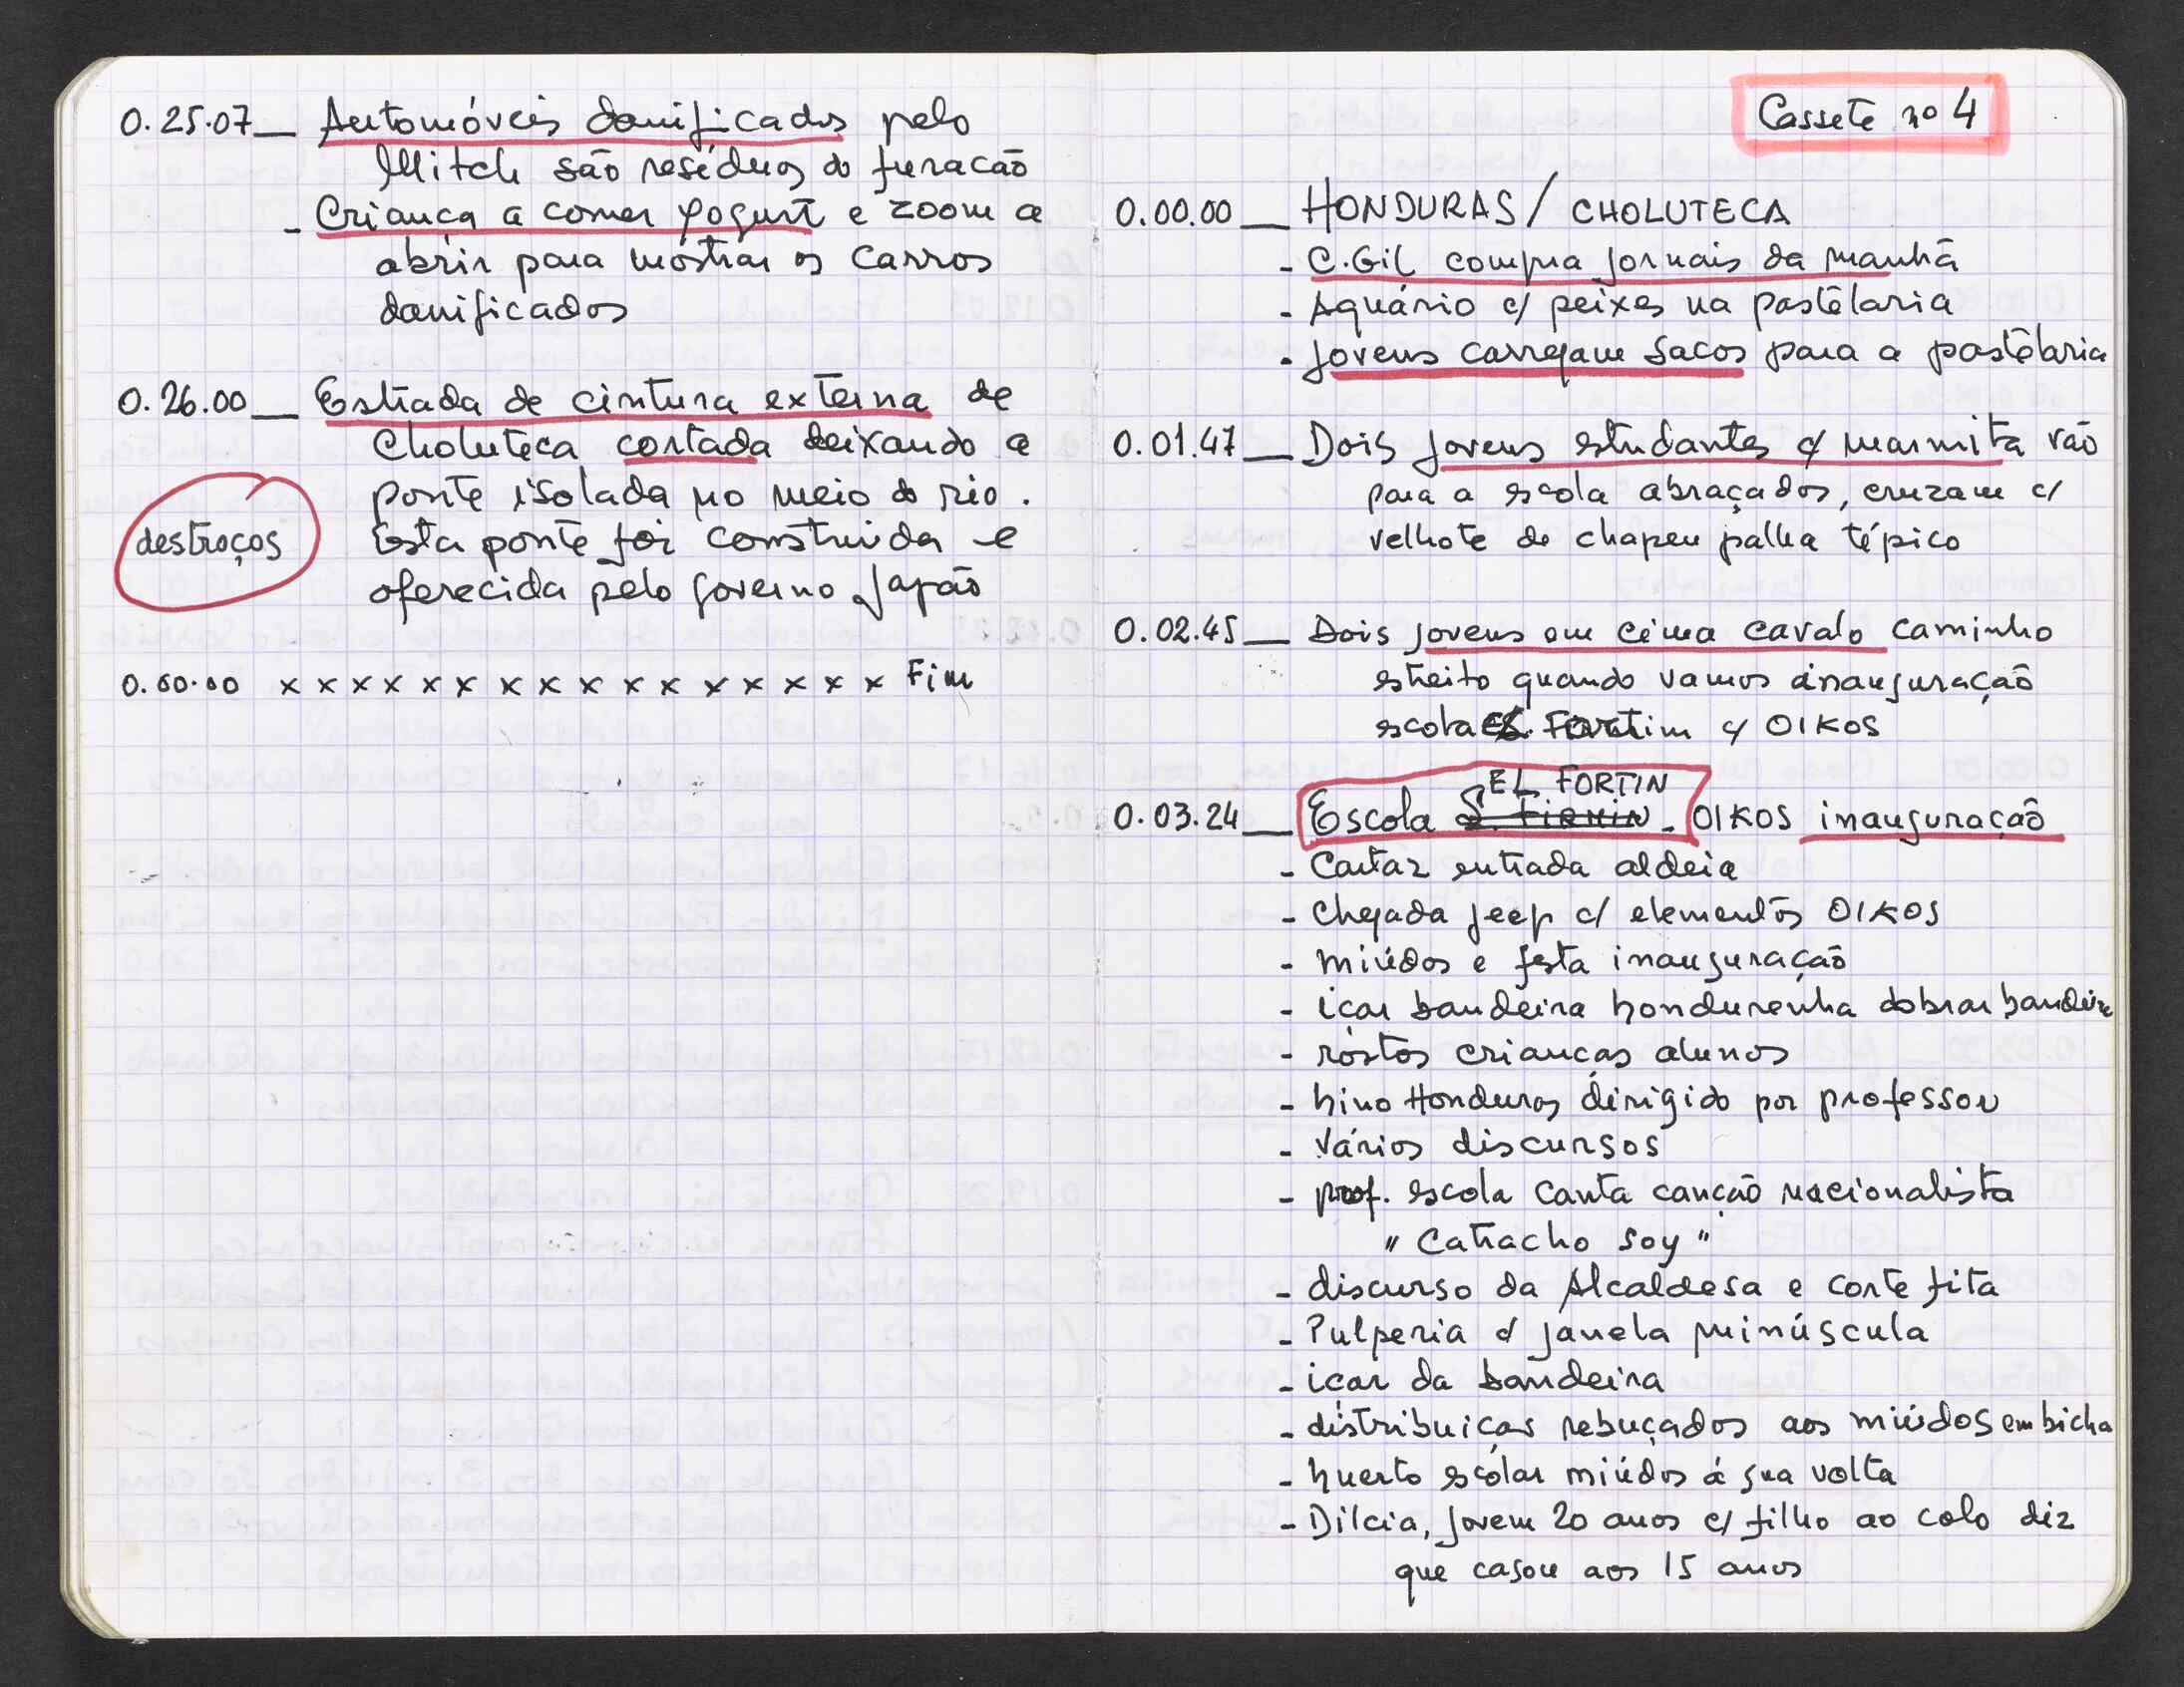 0.25.07 — Automóveis danificados pelo
Mitch são resíduos do furacão
- Criança a comer yogurt e zoom a
abrir para mostrar os carros
danificados
0.26.00 — Estrada de cintura externa de
Choluteca cortada deixando a
ponte isolada no meio do rio.
destroços
Esta ponte foi construida e
oferecida pelo governo Japão
0.00.00 x x x x x x x x x x x x x x x x Fim
Cassete nº 4
0.00.00 — HONDURAS / CHOLUTECA
- C. Gil compra jornais da manhã
- Aquário c/ peixes na pastelaria
- Jovens carregam sacos para a pastelaria
0.01.47 — Dois jovens estudantes c/ marmita vão
para a escola abraçados, cruzam c/
velhote de chapeu palha típico
0.02.45 — Dois jovens em cima cavalo caminho
estreito quando vamos inauguração
escola El Fortim c/ OIKOS
EL FORTIN
0.03.24 — Escola S. FIRMIN - OIKOS inauguração
- Cartaz entrada aldeia
- Chegada jeep c/ elementos OIKOS
- miúdos e festa inauguração
- içar bandeira hondurenha dobrar bandeira
- rostos crianças alunos
- hino Honduras dirigido por professor
- Vários discursos
- prof. escola canta canção nacionalista
" Catracho soy "
- discurso da Alcaldesa e corte fita
- Pulperia c/ janela minúscula
- içar da bandeira
- distribuiçao rebuçados aos miúdos em bicha
- huerto escolar miúdos á sua volta
- Dilcia, jovem 20 anos c/ filho ao colo diz
que casou aos 15 anos